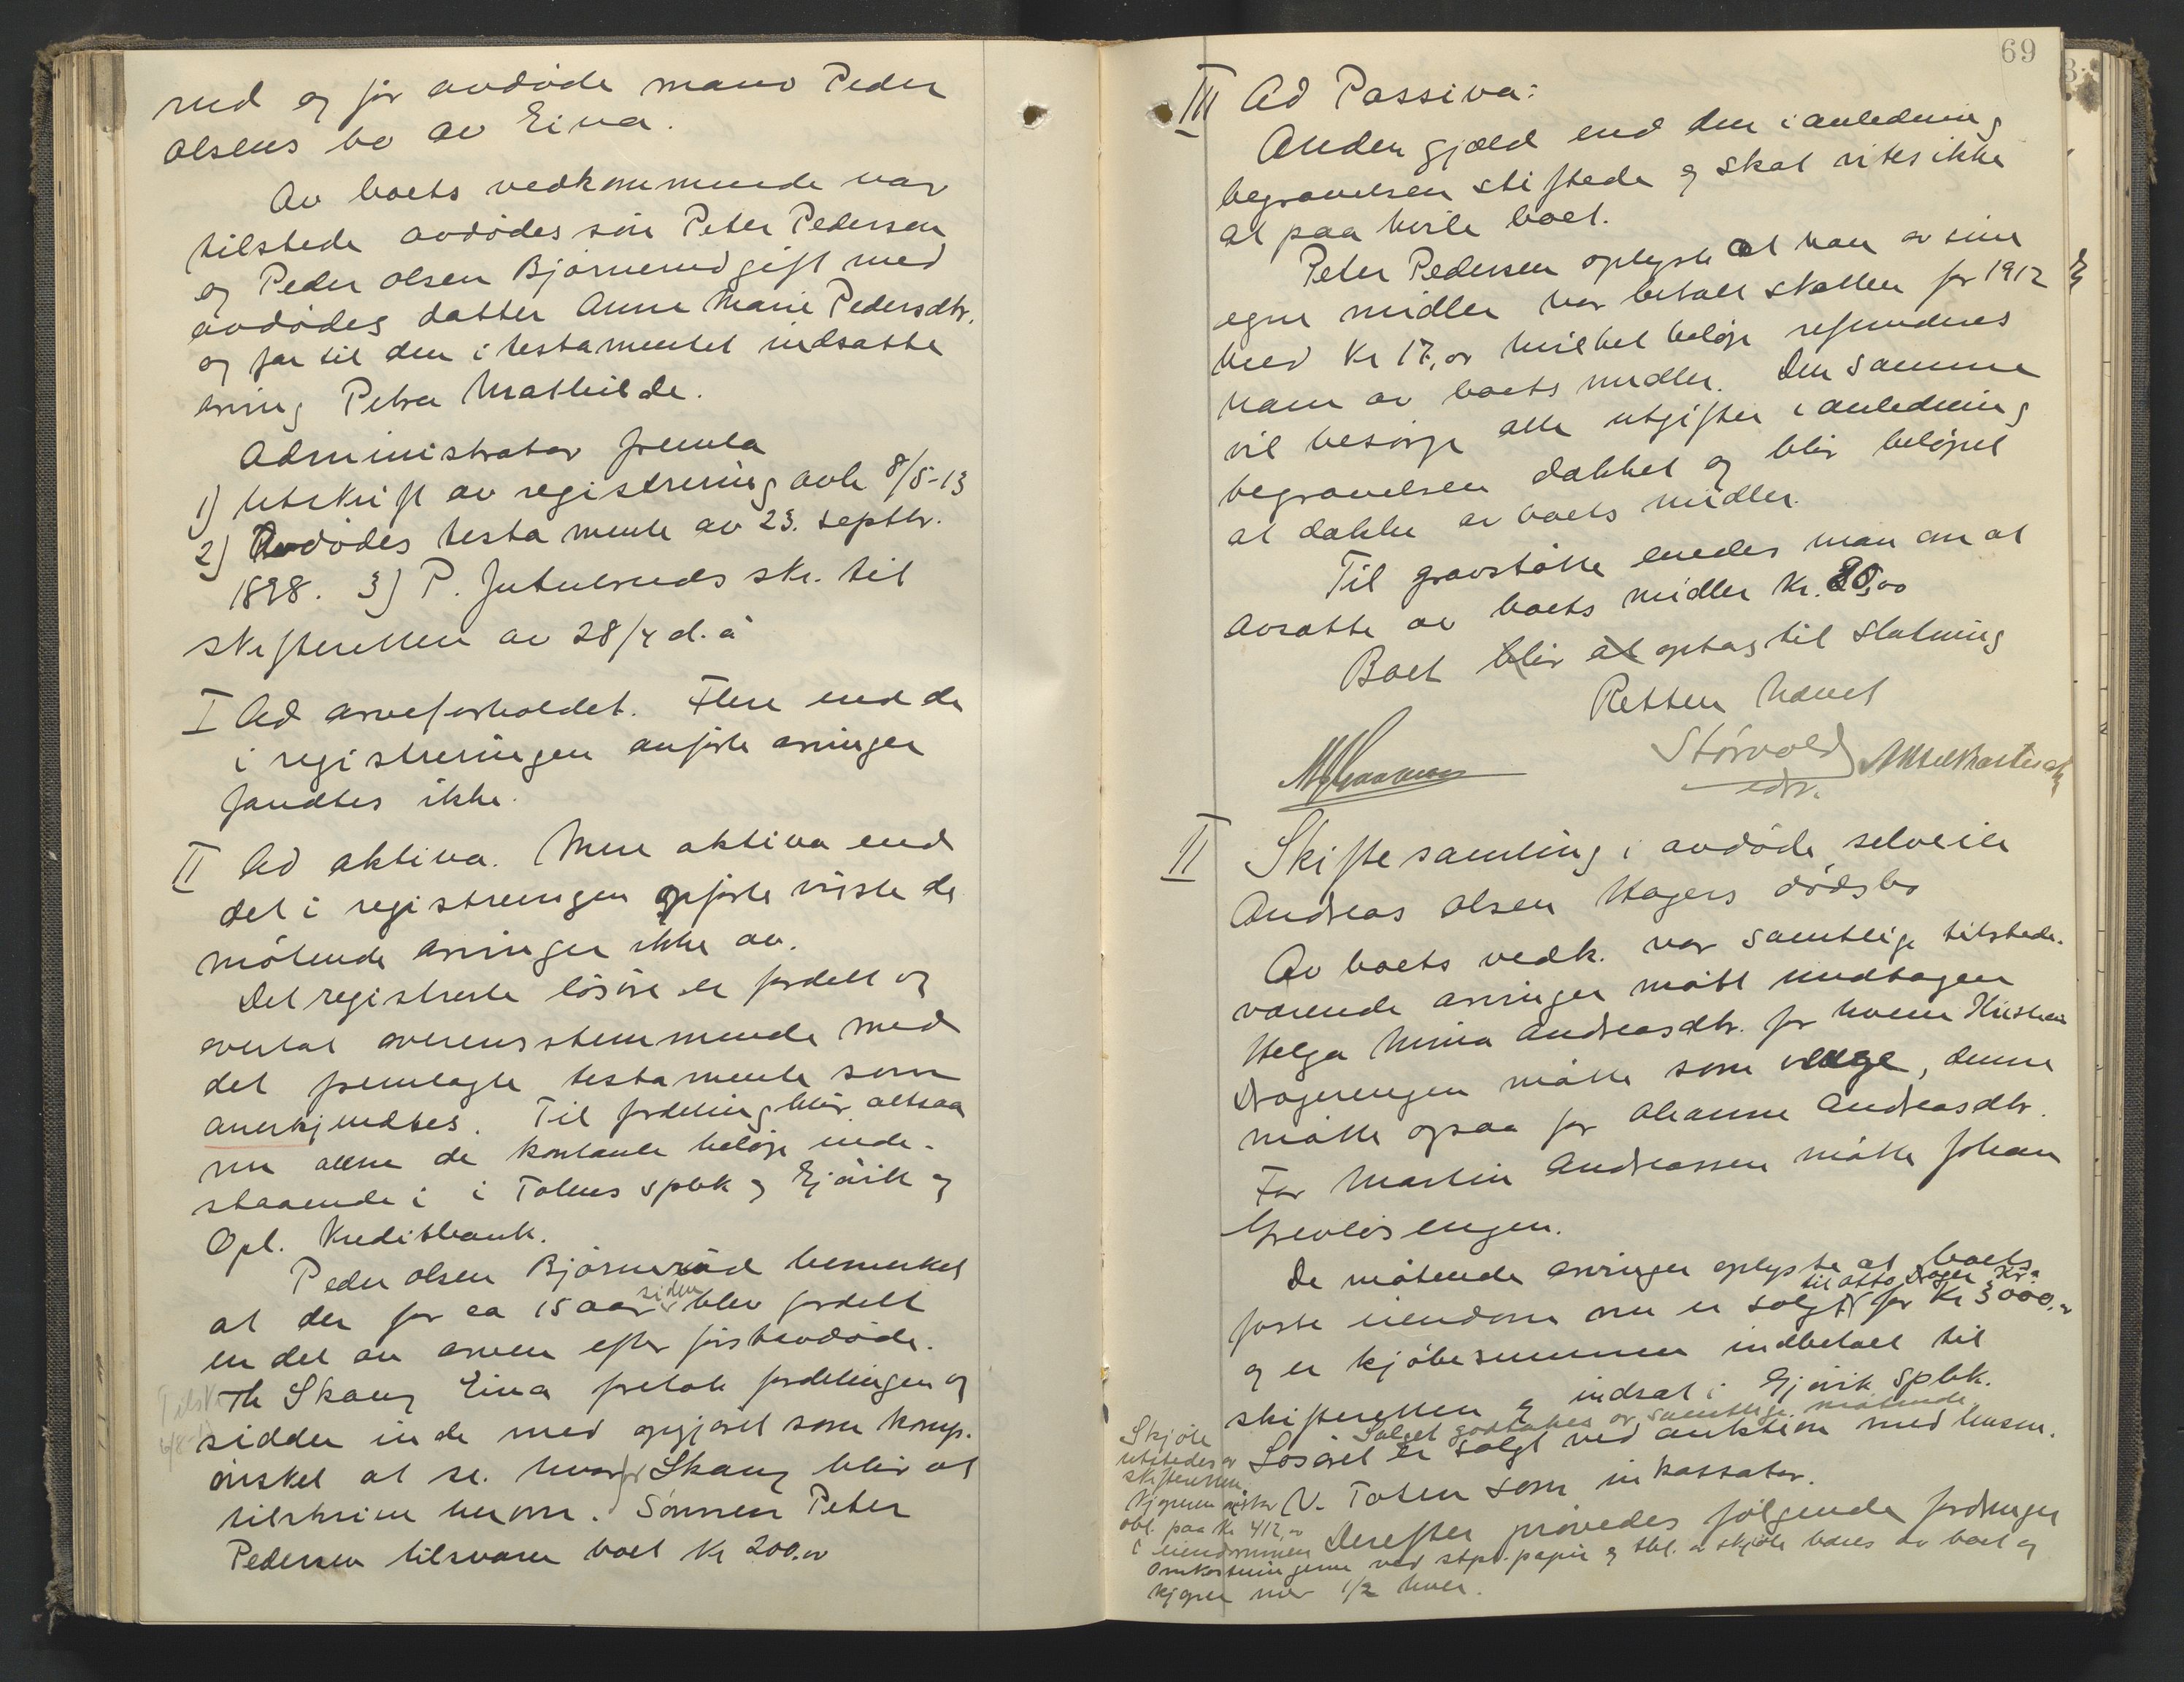 rud og før avdøde mand Peder
Olsens bo av Eina.
Av boets vedkommende var
tilstede avdødes søn Peter Pedersen
og Peder Olsen Bjørnerud gift med
avdødes datter Anne Marie Pedersdtr.
og far til den i testamentet indsatte
arving Petra Mathilde.
Administrator fremla
1) Utskrift av registrering avh 8/5-13
2) Avdødes testamente av 23. septbr.
1898. 3) P. Jutulruds skr. til
skifteretten av 28/4 d.å
I Ad arveforholdet. Flere end de
i registreringen anførte arvinger
fandtes ikke.
II Ad aktiva. Mere aktiva end
det i registreringen opførte visste de
møtende arvinger ikke av.
Det registrerte løsøre er fordelt og
overtat overensstemmende med
det fremlagte testamente som
anerkjendtes. Til fordeling blir altsaa
nu alene de kontante beløp inde-
staaende i i Totens spbk og Gjøvik og
Opl. Kreditbank.
Peder Olsen Bjørnerud bemerket
at der for ca 15 aar siden blev fordelt
en del av arven efter førstavdøde.
Th Skaug Eina foretok fordelingen og
sidder inde med opgjøret som komp.
ønsket at se. hvorfor Skaug blir at
tilskrive herom. Sønnen Peter
Pedersen tilsvarer boet Kr 200.00
69
III Ad Passiva:
Anden gjæld end den i anledning
begravelsen stiftede og skat vites ikke
at paa hvile boet.
Peter Pedersen oplyste at han av sine
egne midler har betalt skatten for 1912
med Kr 17,00 hvilket beløp refunderes
ham av boets midler. Den samme
vil besørge alle utgifter i anledning
begravelsen dækket og blir beløpet
at dække av boets midler.
Til gravstøtte enedes man om at
avsætte av boets midler Kr. 80,00
Boet blir at optas til slutning
Retten hævet
Størvold
edv.
II Skiftesamling i avdøde selveier
Andreas Olsen Hagers dødsbo
Av boets vedk. var samtlige tilstede-
værende arvinger møtt undtagen
Helga Mina Andreasdtr. for hvem Kristian
Dragerengen møtte som verge, denne
møtte ogsaa for Oleanne Andreasdtr.
For Martin Andreassen møtte Johan
Grevløsengen.
De møtende arvinger oplyste at boets
til Otto Drager Kr.a
faste eiendom nu er solgt for Kr 3000.00
og er kjøbesummen indbetalt til
skifteretten og indsat i Gjøvik spbk.
Salget godtakes av samtlige møtende
Løsøret er solgt ved auktion med lensm.
V. Toten som inkassator.
Derefter prøvedes følgende fordringer
Skjøte
utstedes av
skifteretten
obl. paa Kr 412,00
i eiendommen
Omkostningerne ved stpl. papir og tbl. av skjøte bæres av boet og
kjøper med 1/2 hver.